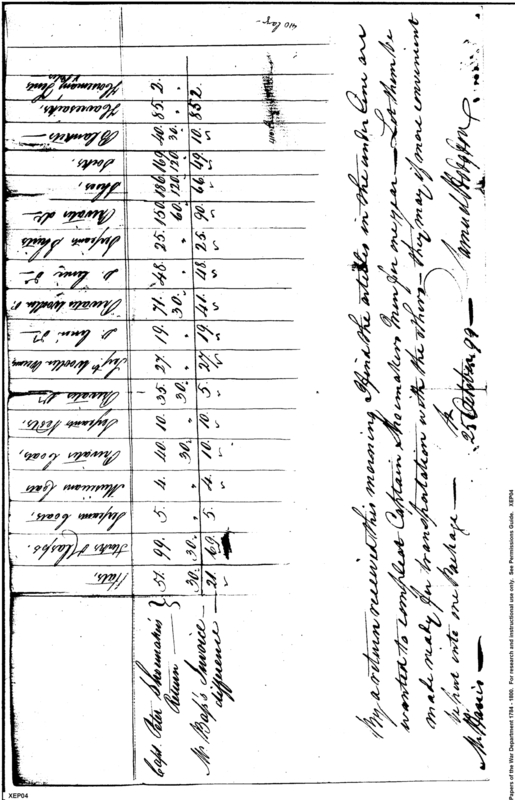 Hats,
Stocks & Clasps.
Serjeants Coats,
Musicians Coats
Privates Coats,
Serjeants Vests,
Privates Do
Serjts Woolen Overalls
Do Linnen Do
Privates Woolen Do
Do Linnen Do
Serjeants Shirts
Privates do
Shoes,
Socks,
Blankets
Haversacks,
Horsemans Tents
& Poles
Capt. Peter Shoemaker's Return } 51. 99. 5. 4. 40. 10. 35. 27. 19. 71. 48. 25. 150. 186. 169. 40. 85. 2.
Mr. Bap's Invoice 30. 30. " " 30. " 30. " " 30. " " 60. 120. 120. 30. "
difference 21. 69. 5. 4. 10. 10. 5. 27. 19. 41. 48. 25. 90. 66. 49. 10. 85 2.
By a return received this morning I find the articles in the under line are
wanted to compleat Captain Shoemakers Men for one year — Let them be
made ready for transportation with the others, they may if more convenient
be put into one Package —
25 October 99 — Samuel Hodgdon
Mr Harris —
XEP04
Papers of the War Department 1784 - 1800. For research and instructional use only. See Permissions Guide. XEP04